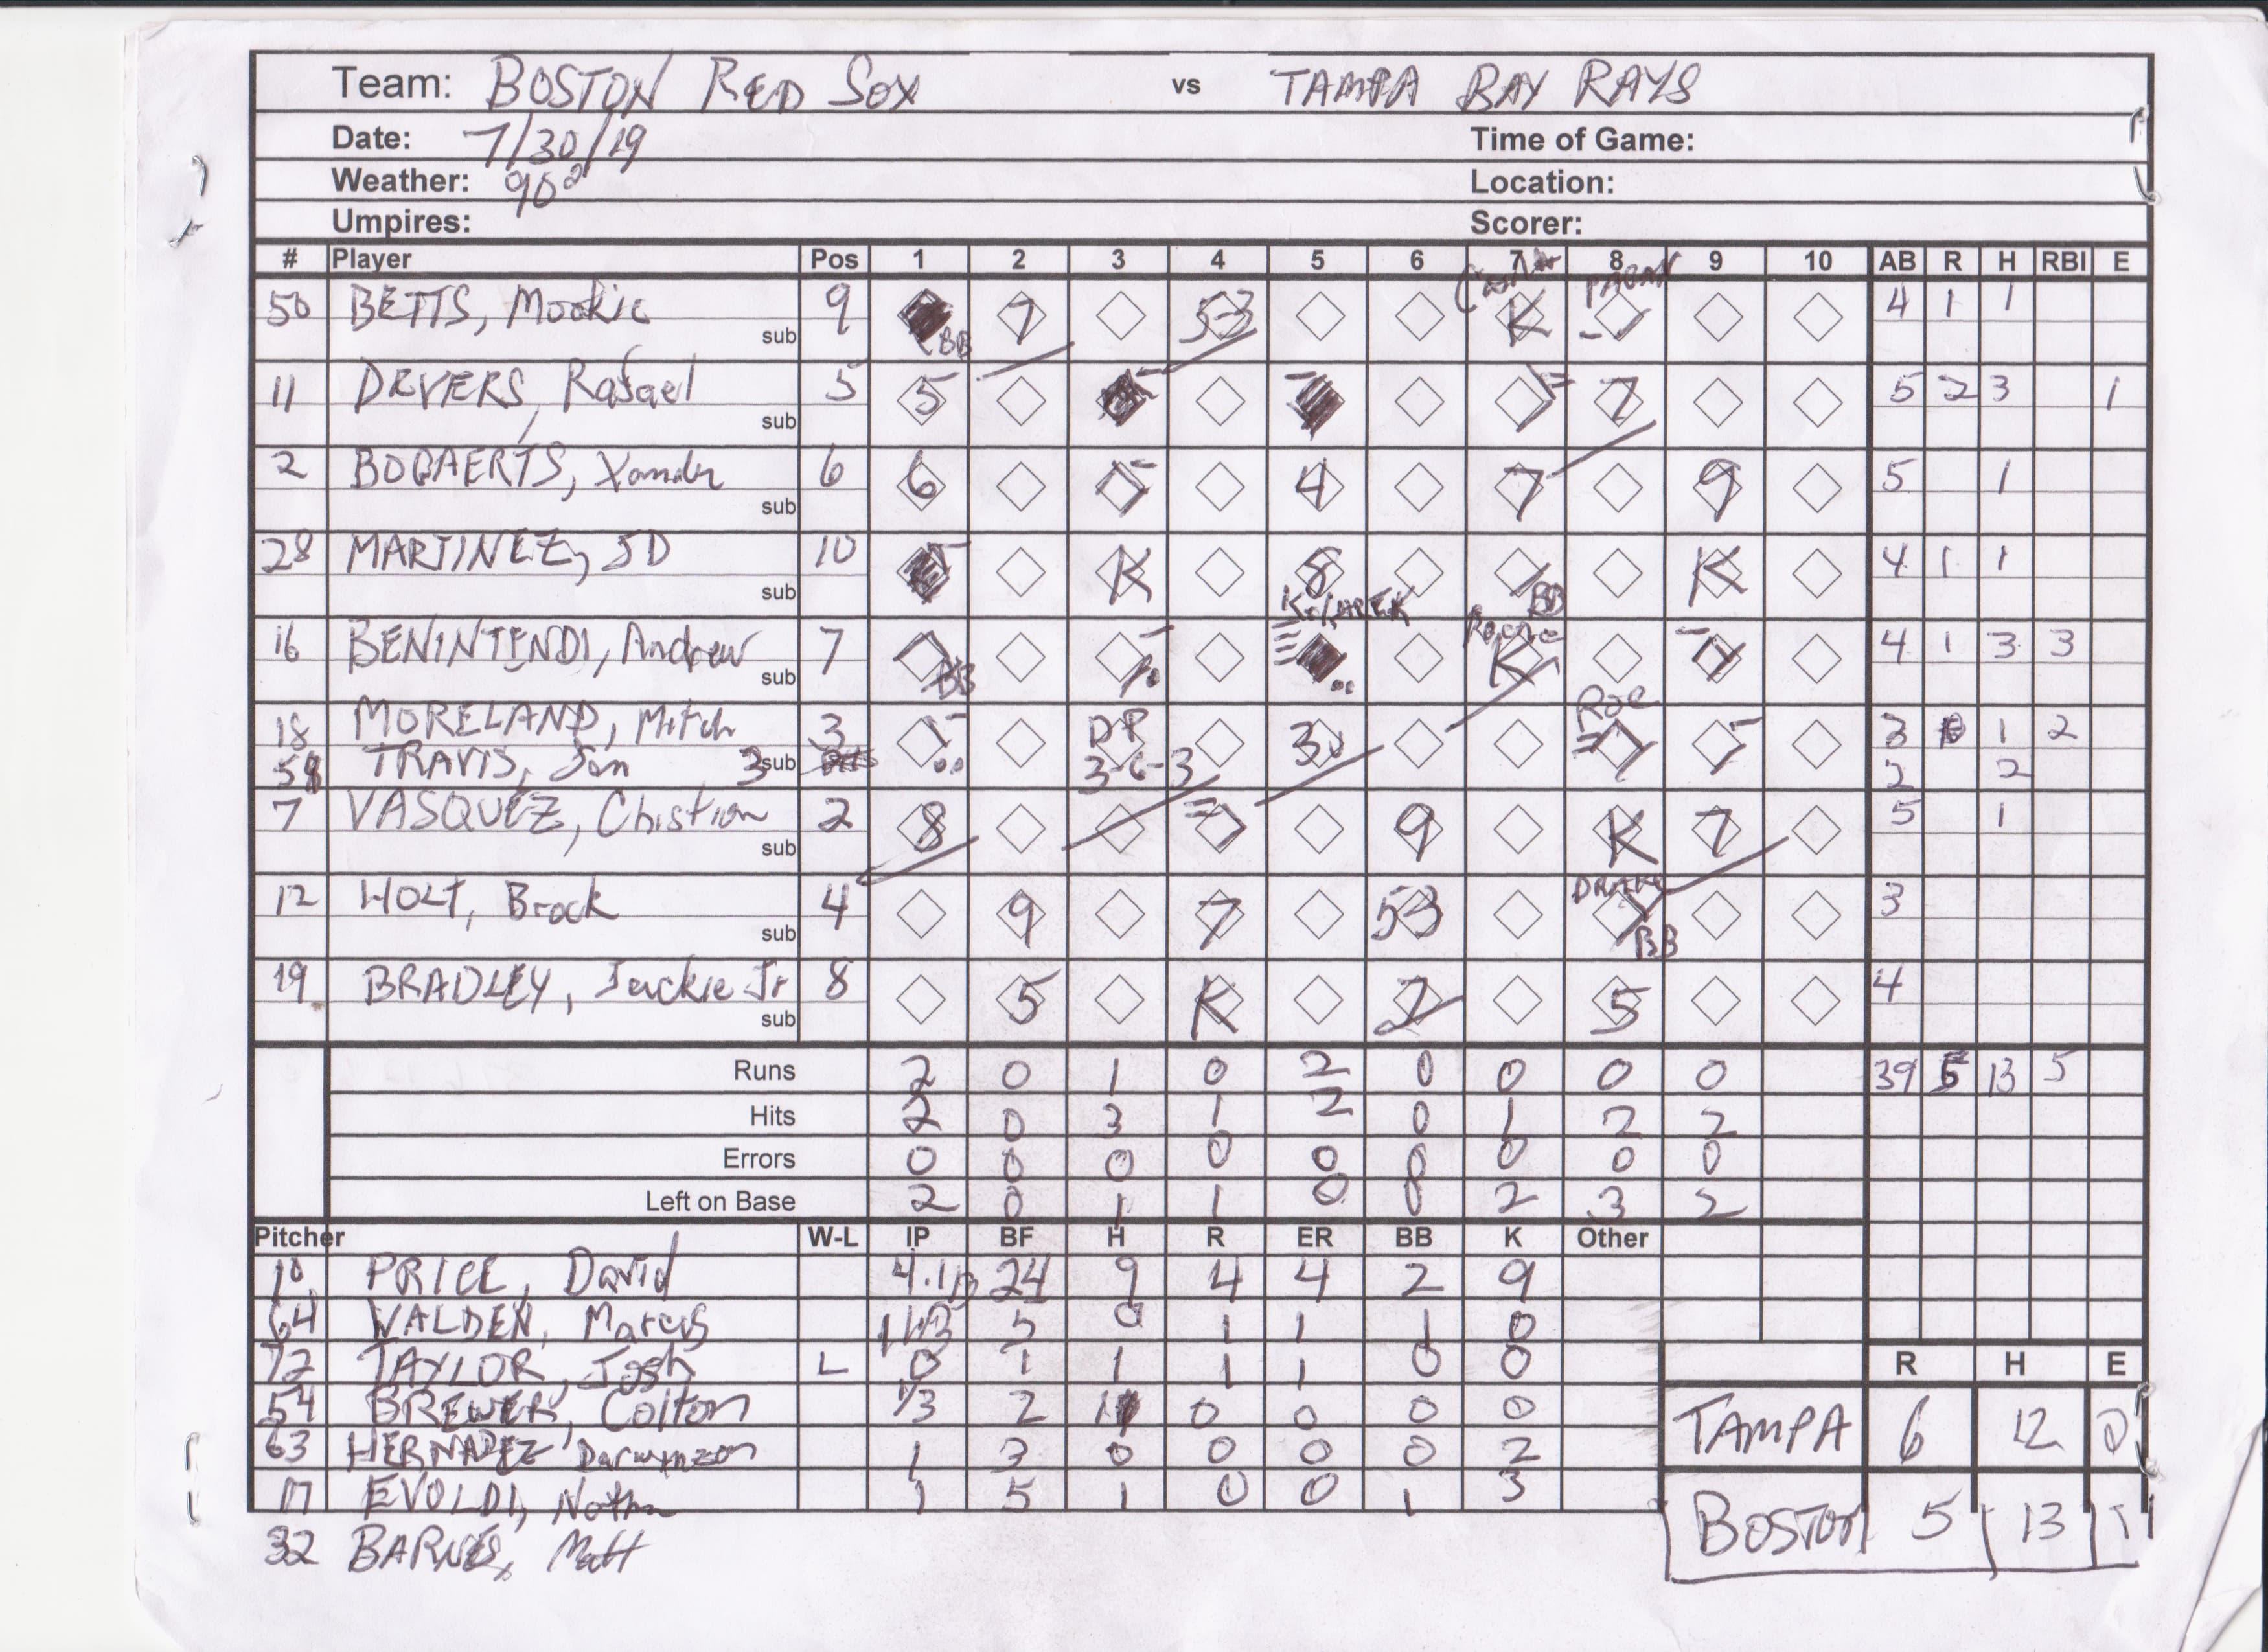 Team: BOSTON RED SOX vs TAMPA BAY RAYS
Date: 7/30/19 Time of Game:
Weather: 90° Location:
Umpires: Scorer:
# Player Pos 1 2 3 4 5 6 7 8 9 10 AB R H RBI E
50 BETTS, Mookie 9 BB 7 5-3 K 4 1 1
sub
11 DEVERS, Rafael 5 5 7 5 2 3 1
sub
2 BOGAERTS, Xander 6 6 4 7 9 5 1
sub
28 MARTINEZ, JD 10 K 8 BB K 4 1 1
sub
16 BENINTENDI, Andrew 7 BB K 4 1 3 3
sub
18 MORELAND, Mitch 3 DP 3-6-3 3 Roe 3 1 2
58 TRAVIS, Sam 3 sub 2 2
7 VASQUEZ, Christian 2 8 9 K 7 5 1
sub
12 HOLT, Brock 4 9 7 5-3 BB 3
sub
19 BRADLEY, Jackie Jr 8 5 K 7 5 4
sub
Runs 2 0 1 0 2 0 0 0 0 39 5 13 5
Hits 2 0 3 1 2 0 1 2 2
Errors 0 0 0 0 0 0 0 0 0
Left on Base 2 0 1 1 0 0 2 3 2
Pitcher W-L IP BF H R ER BB K Other
10 PRICE, David 4.1/3 24 9 4 4 2 9
64 WALDEN, Marcus 1 1/3 5 0 1 1 1 0
72 TAYLOR, Josh L 0 1 1 1 1 0 0
54 BREWER, Colton 1/3 2 1 0 0 0 0
63 HERNADEZ Darwinzon 1 3 0 0 0 0 2
17 EVOLDI, Nathan 1 5 1 0 0 1 3
32 BARNES, Matt
R H E
TAMPA 6 12 0
BOSTON 5 13 1